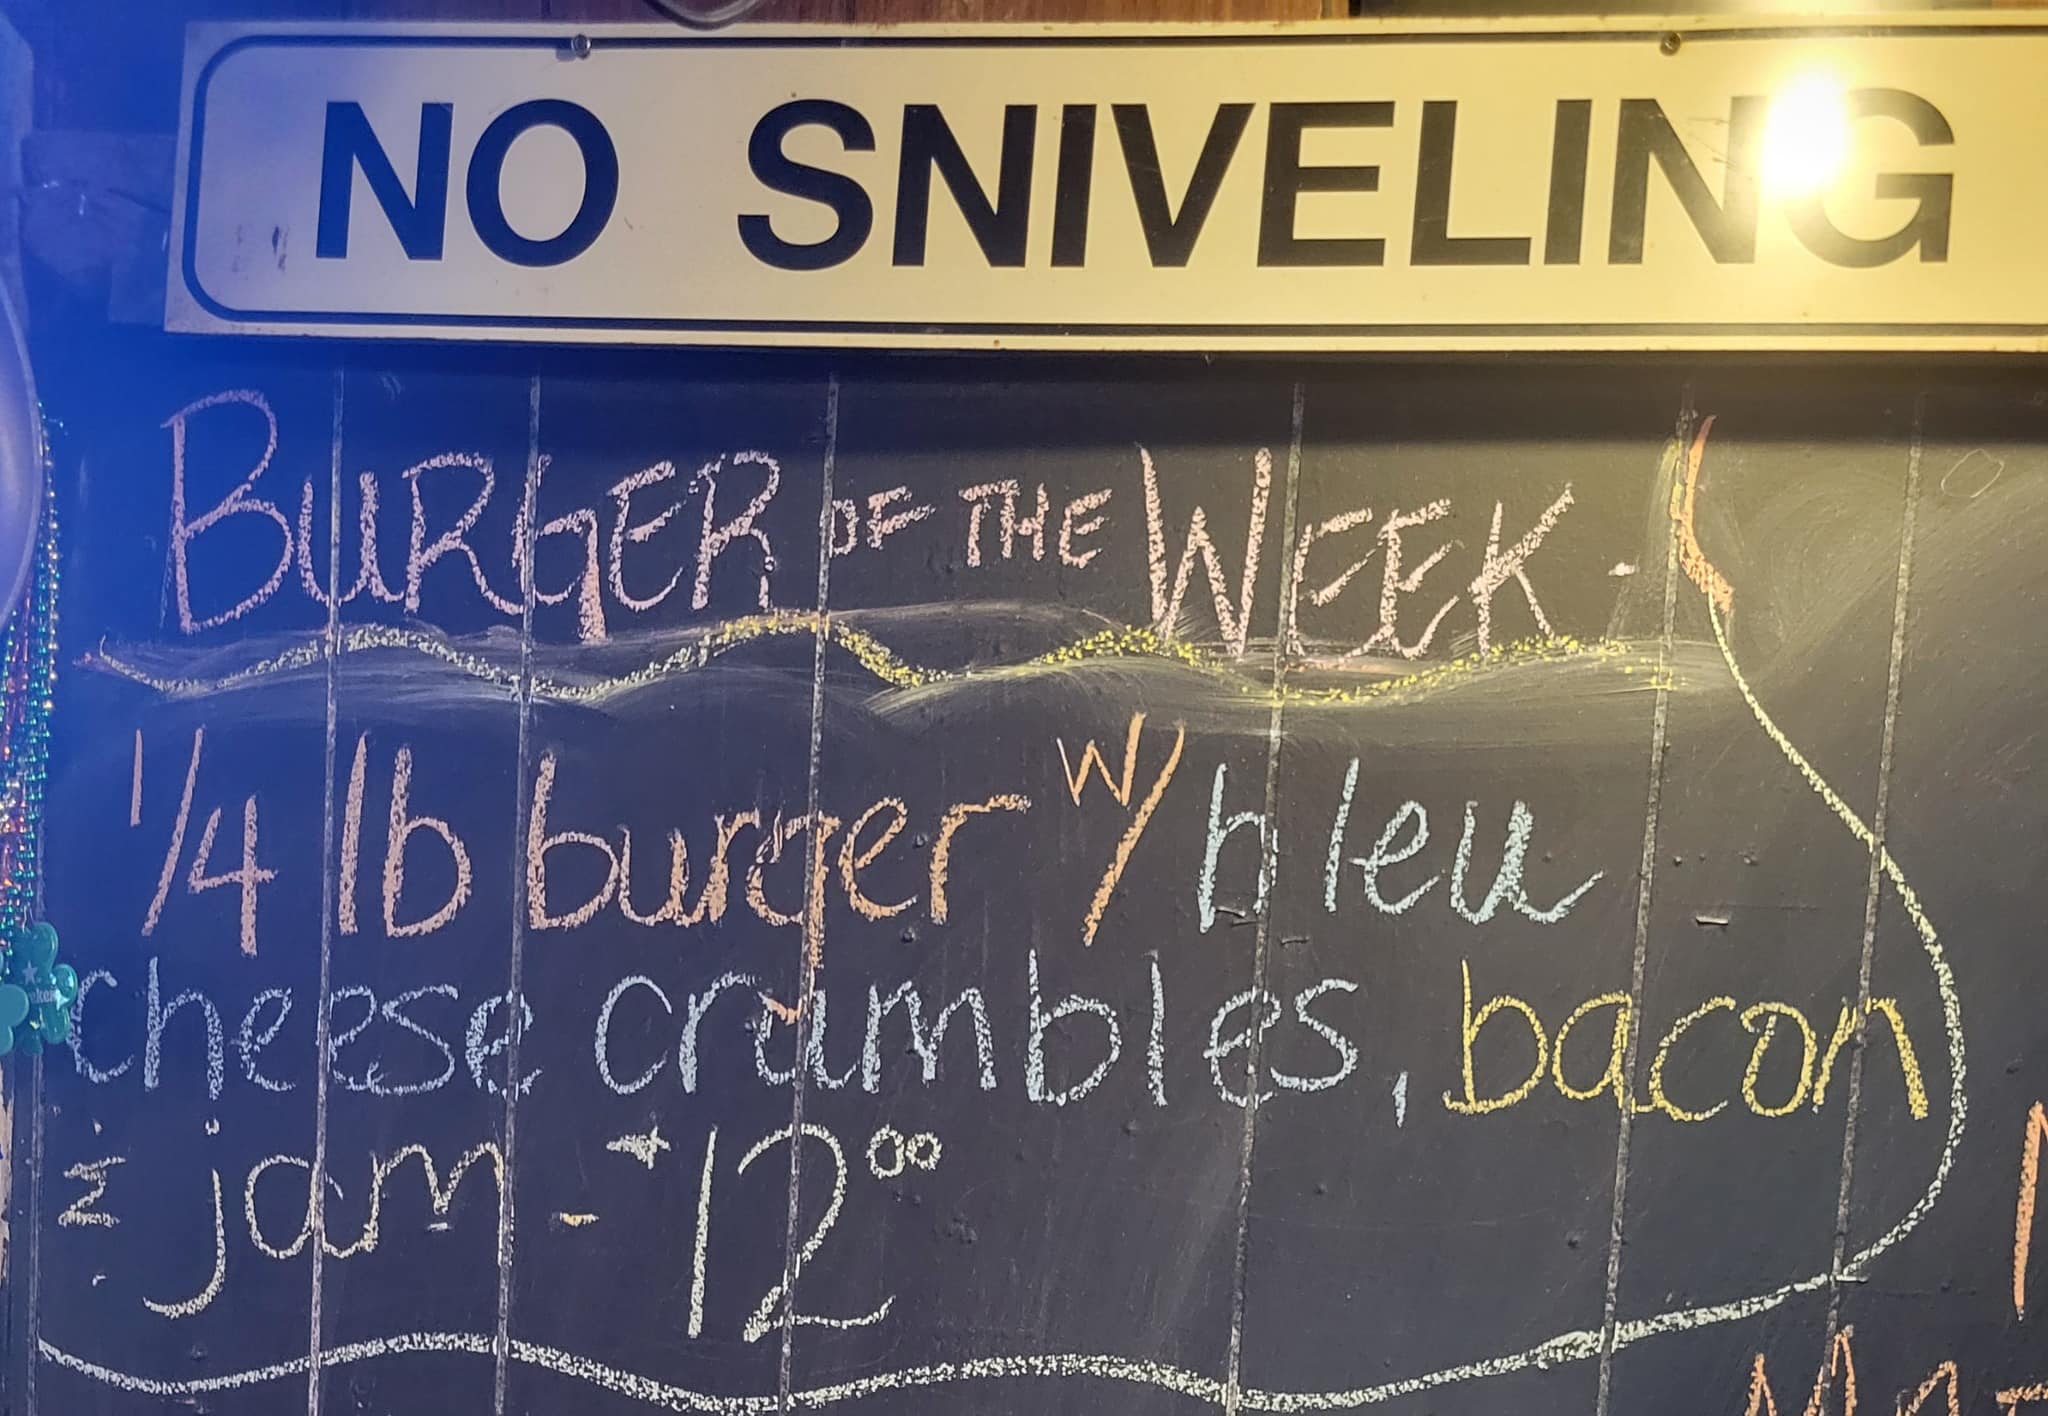 NO SNIVELING
BURGER OF THE WEEK -
1/4 lb burger w/ bleu
cheese crumbles, bacon
jam - 12⁰⁰